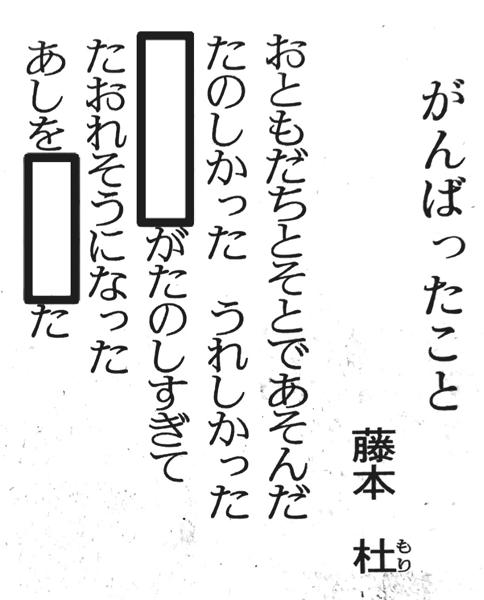 がんばったこと
藤本　杜
もり
おともだちとそとであそんだ
たのしかった　うれしかった
がたのしすぎて
たおれそうになった
あしを
た